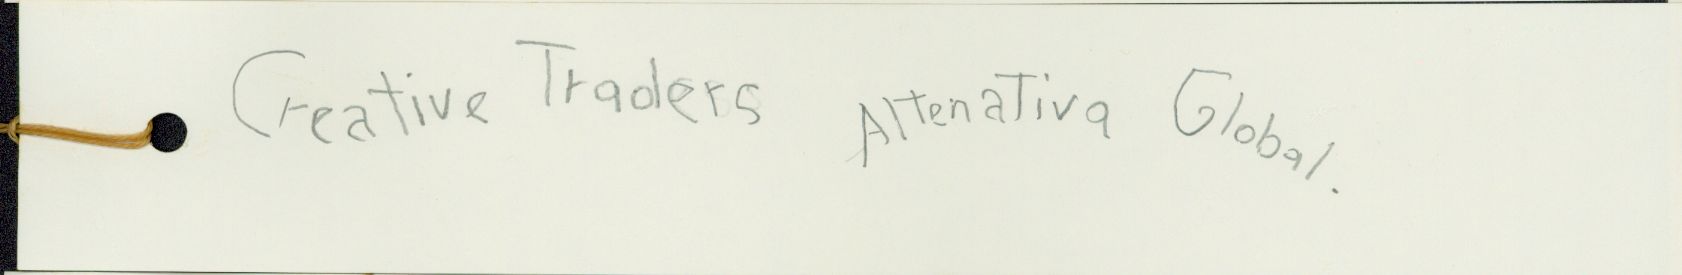 Creative Traders Altenativa Global.